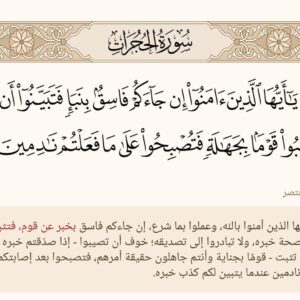 سُورَةُ الحُجُرَاتِ
يَٰٓأَيُّهَا ٱلَّذِينَ ءَامَنُوٓاْ إِن جَآءَكُمۡ فَاسِقُۢ بِنَبَإٖ فَتَبَيَّنُوٓاْ أَن
بُواْ قَوۡمَۢا بِجَهَٰلَةٖ فَتُصۡبِحُواْ عَلَىٰ مَا فَعَلۡتُمۡ نَٰدِمِينَ
ختصر
ها الذين آمنوا بالله، وعملوا بما شرع، إن جاءكم فاسق بخبر عن قوم، فتثب
صحة خبره، ولا تبادروا إلى تصديقه؛ خوف أن تصيبوا - إذا صدقتم خبره
تثبت - قومًا بجناية وأنتم جاهلون حقيقة أمرهم، فتصبحوا بعد إصابتكم
نادمين عندما يتبين لكم كذب خبره.